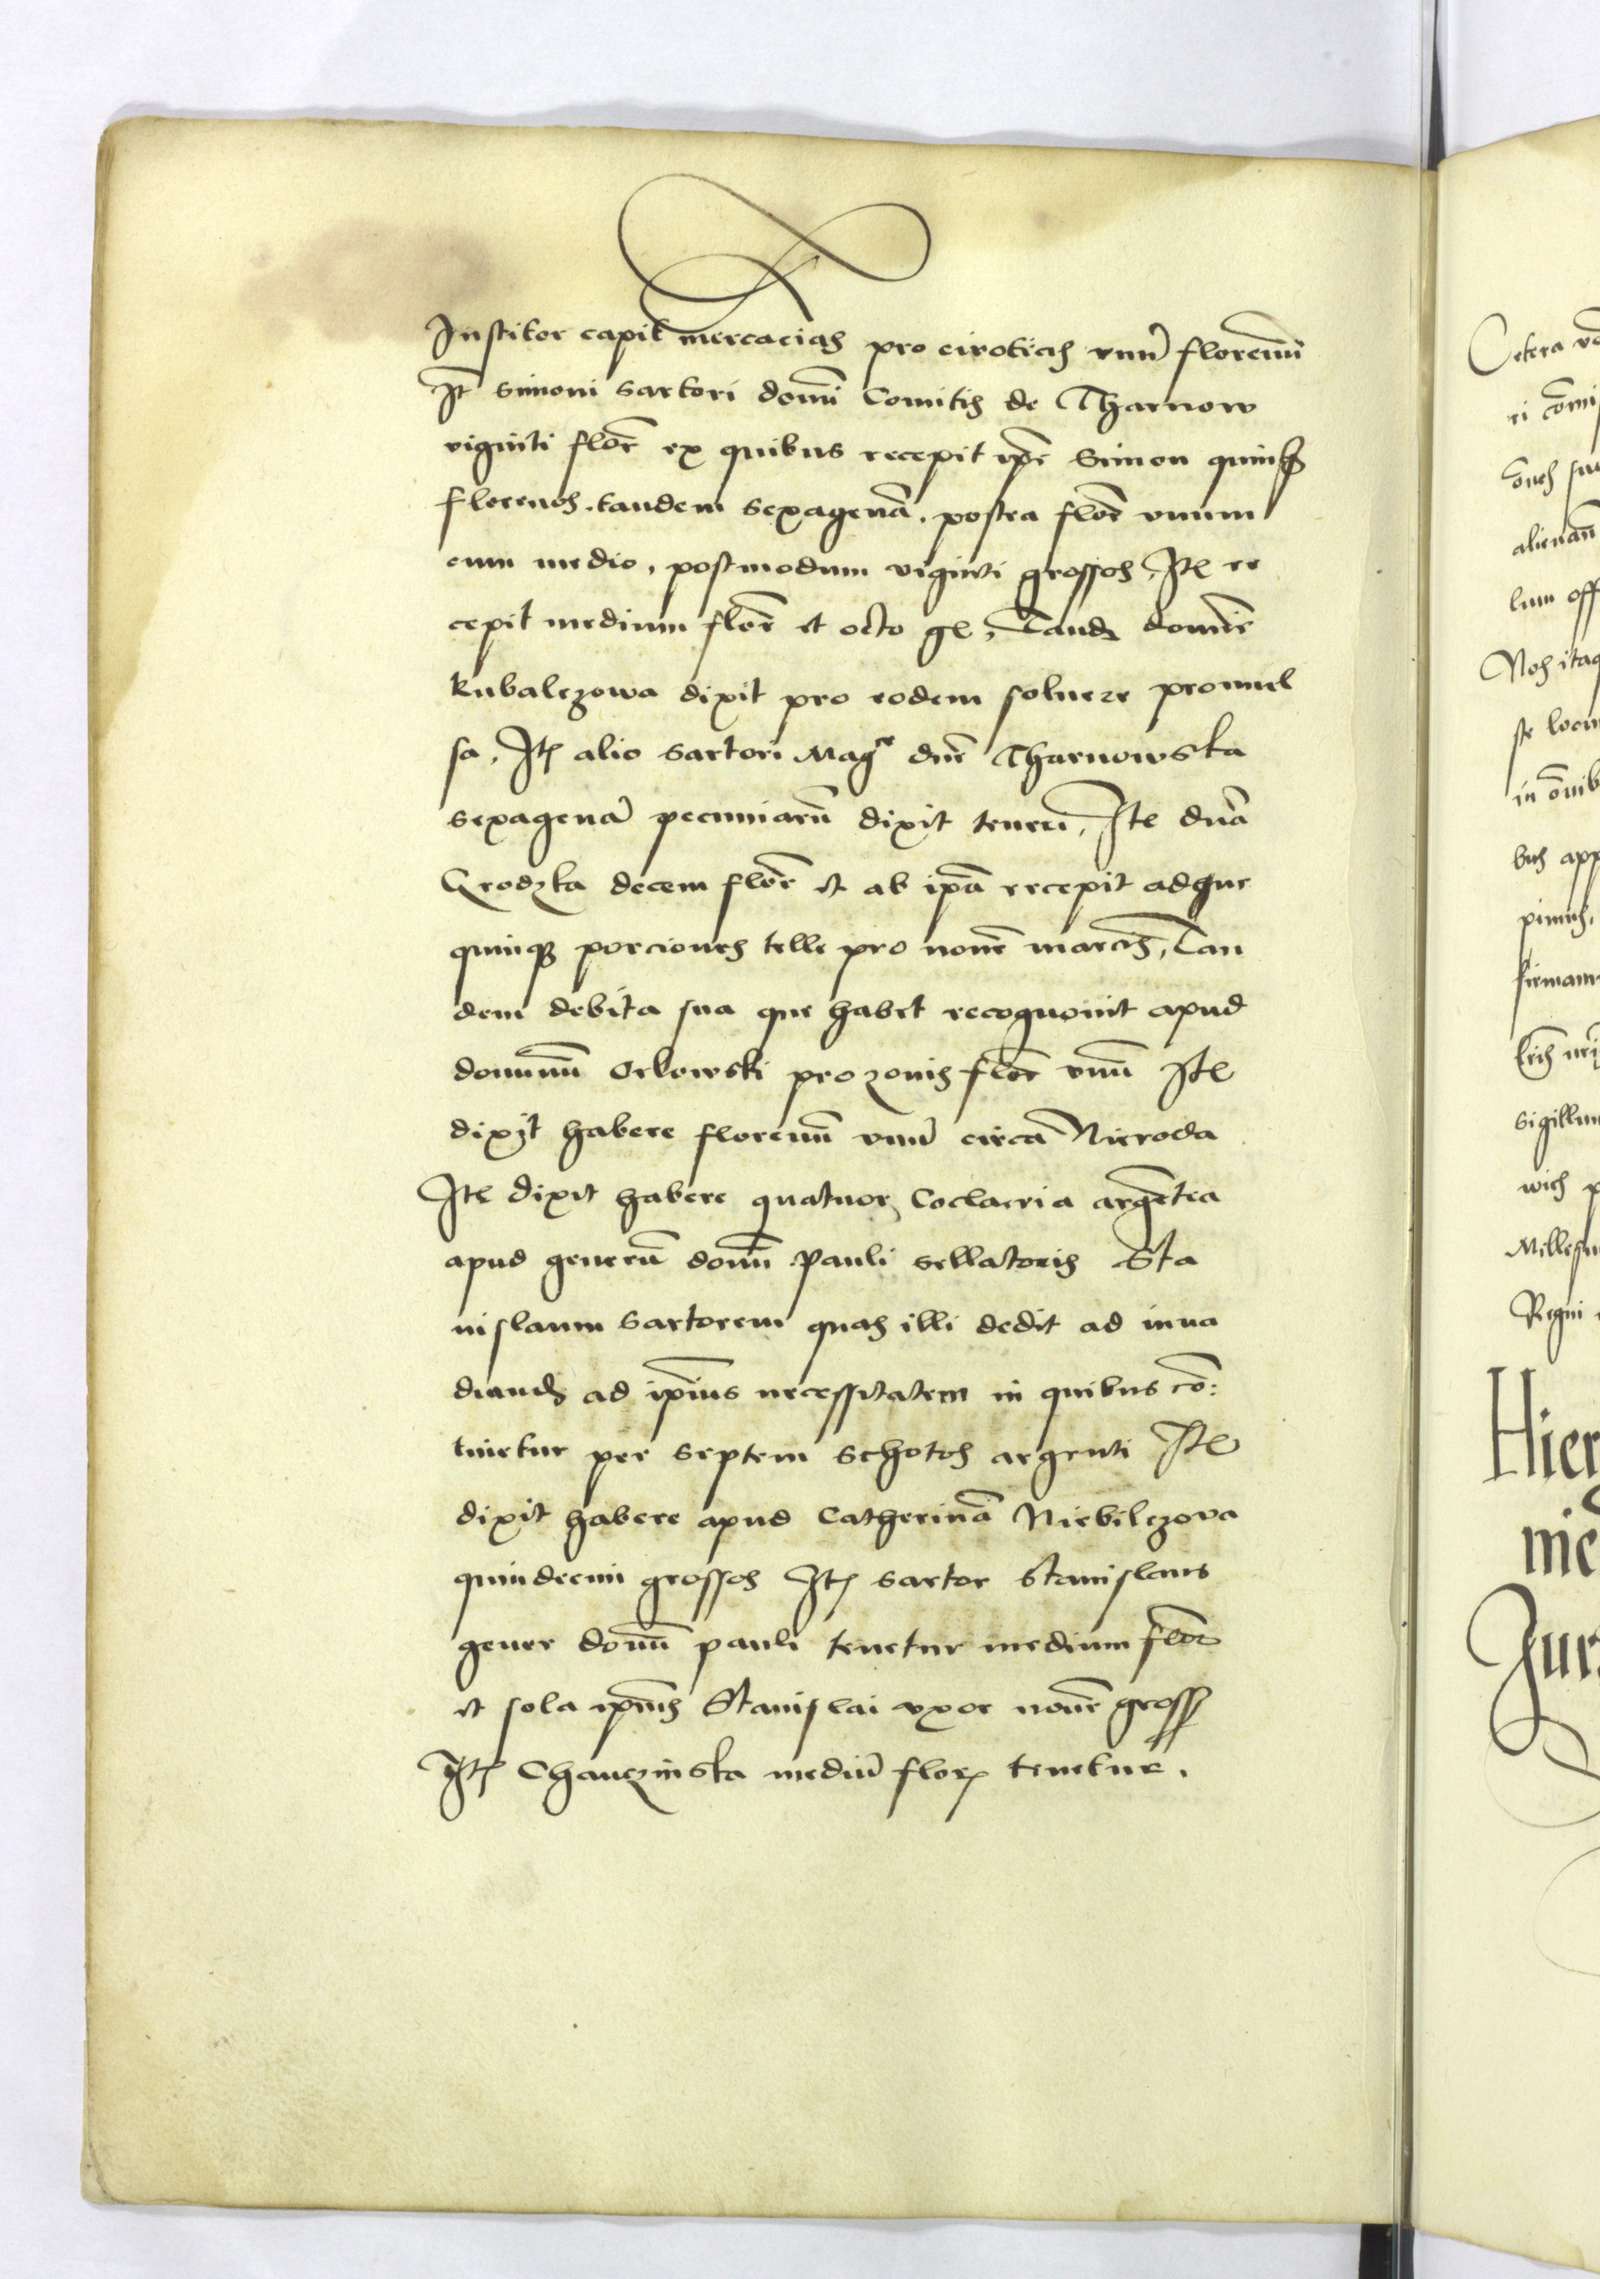 Institor capit mercacias pro cirotecis unū florenū
Itē Simoni sartori domī Comitis de Tharnow
viginti florē ex quibus recepit ipē Simon quinqȝ
florenos, tandem sexagenā, postea florē unum
cum medio, postmodum viginti grossos, Itē re
cepit medium florē et octo gr, Tandē
Kubalczowa dixit pro eodem soluere promis
sa, Itē alio sartori Magce dnē Tharnowska
sexagenā pecuniarū dixit teneri, Itē dnā
Grodzka decem florē et ab ipā recepit adhuc
quinqȝ porciones telle pro novē marcis, Tan
dem debita sua que habet recognouit apud
dominū Orlowski pro zonis florē unū Itē
dixit habere florenū unū circa Nieroda
Itē dixit habere quatuor Coclearia argētea
apud generū domī Pauli sellatoris Sta
nislaum sartorem quas illi dedit ad inua
diandē ad ipīus necessitatem in quibus cō:
tinetur per septem schotos argenti Itē
dixit habere apud Catherinā Niebilczova
quindecim grossos Itē sartor Stanislaus
gener domī pauli tenetur medium florē
et sola ipīus Stanislai uxor novē gross
Itē Chanczinska mediū florē tenetur.
Cetera
alienan
lum off
Nos itaq
ste locu
bus app
pimus,
firmam
sigillum
wich p
Millesim
Regni
Hier
nie
Jur